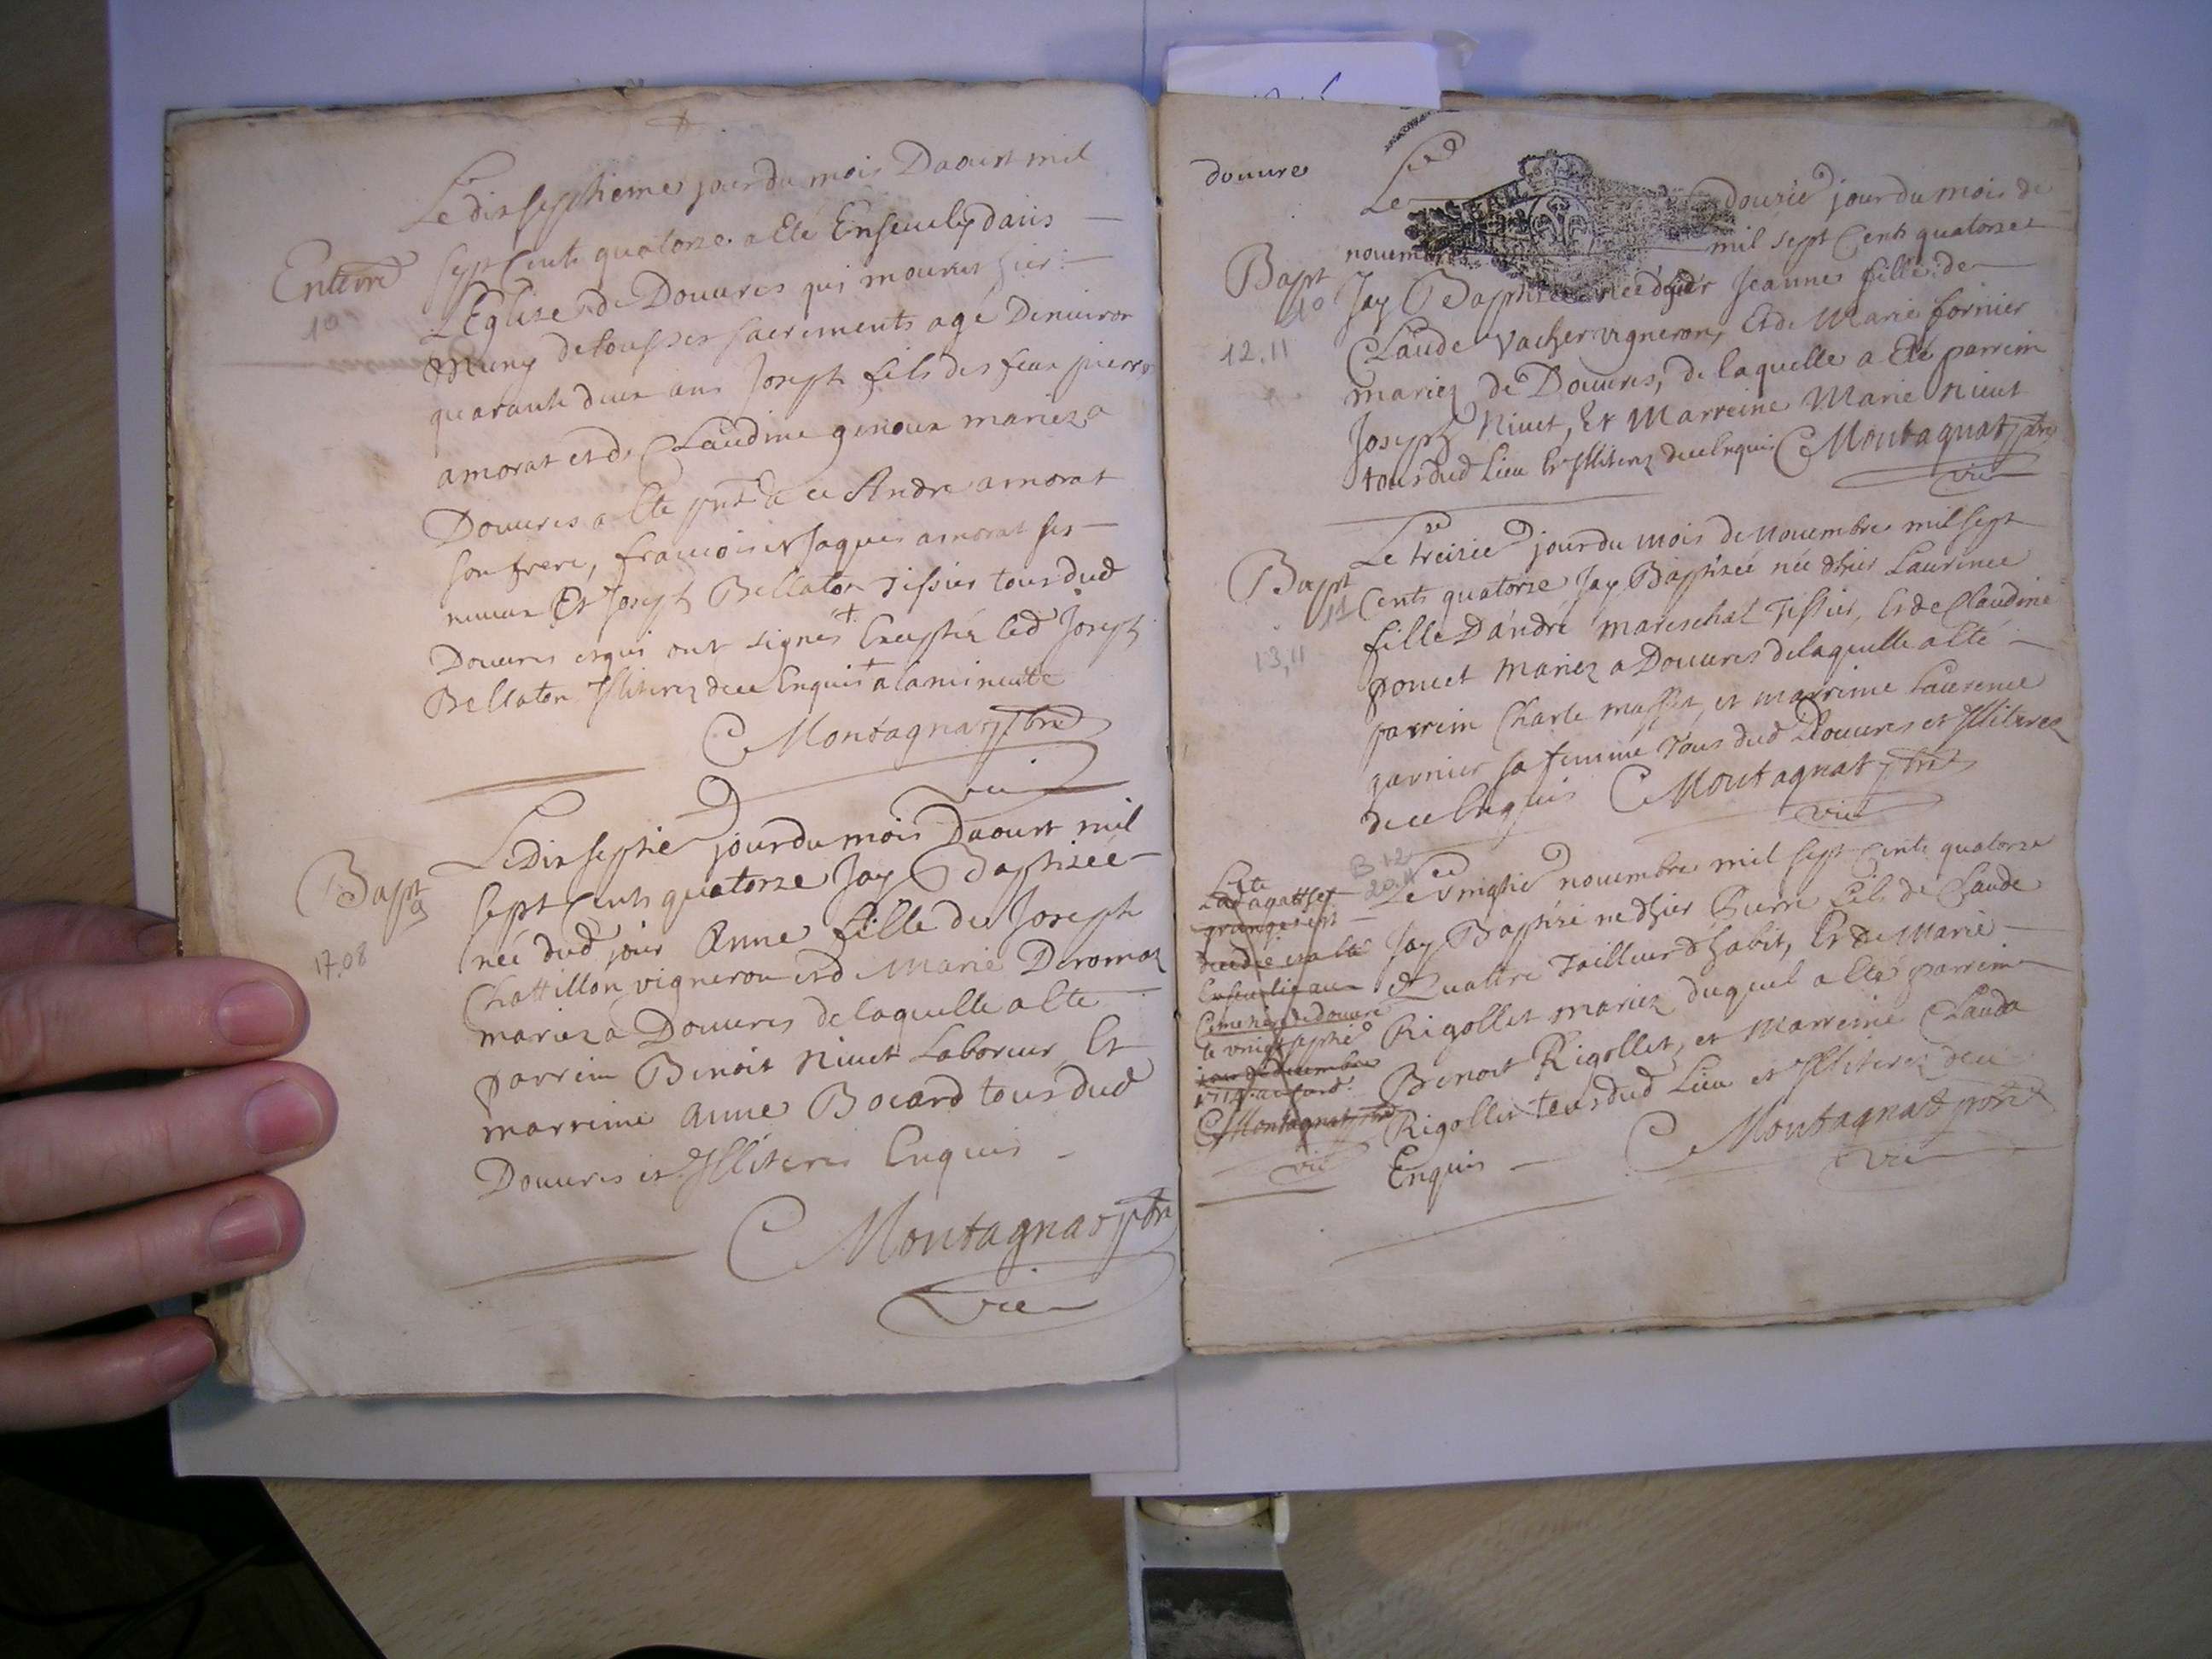 Le dixseptieme jour du mois Daoust mil
Enterre
10
sept Cents quatorze. a Eté Ensevely dans
L'Eglise de Douvres qui mourut hier
Muny de tous ses sacrements agé Denviron
quarante deux ans Joseph fils des feux pierre
amorat et de Claudine genoux mariez a
Douvres a Ete pnt a ce Andre amorat
son frere, francois et Jaques amorat ses
neveux Et Joseph Bellaton Tissier tous dud
Douvres et qui ont signes + Exceptez led Joseph
Bellaton Illiterez de ce Enquis + a la minutte
C Montagnat pbre
vic
Bapt
9
17.08
Le Dixseptie jour du mois Daoust mil
sept Cents quatorze Jay Baptizée
née dud jour Anne fille de Joseph
Chattillon vigneron et de Marie Deromaz
mariez a Douvres de laquelle a Ete
parrein Benoit Nivet Laboreur Et
marreine anne Bocard tous dud
Douvres et Illiteres Enquis
C Montagnat pbr
vic
douvre
Le douzie jour du mois de
novembre mil sept Cents quatorze
Bapt
10
12.11
Jay Baptizée née d'hier Jeanne fille de
Claude Vacher vigneron, Et de Marie fornier
mariez de Douvres, de laquelle a Eté parrein
Joseph Nivet, Et Marreine Marie Nivet
tous dud Lieu Et Illiterez de ce Enquis C Montagnat pbre
vic
Bapt
11
13.11
Le treizie jour du mois de novembre mil sept
Cents quatorze Jay Baptizée née d'hier Laurence
fille D'andré mareschal Tissier, Et de Claudine
poncet mariez a Douvres de laquelle a Eté
parrein Charle masset, et marreine Laurence
garnier sa femme Tous dud Douvres et Illiterez
de ce Enquis C Montagnat pbre
vic
B 12
20.11
Le vingtie novembre mil sept Cents quatorze
Jay Baptizé né d'hier Pierre fils de Claude
Quattre Tailleur d'habit, Et de Marie
Rigollet mariez duquel a Eté parrein
Benoit Rigollet, et Marreine Clauda
Rigollet tous dud Lieu et Illiterez de ce
Enquis C Montagnat pbre
vic
decedée et a Eté
Ensevelie au
Cimetiere de Douvre
le vingtseptie
jour de decembre
C Montagnat pbre
vic